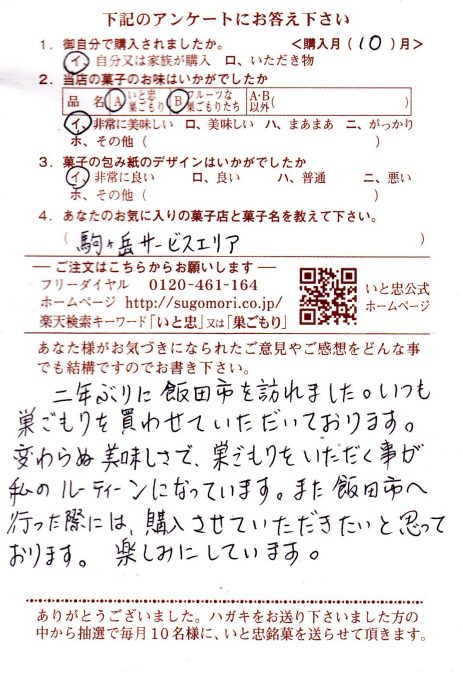 下記のアンケートにお答え下さい
1．御自分で購入されましたか。　＜購入月（10）月＞
イ、自分又は家族が購入　ロ、いただき物
2．当店の菓子のお味はいかがでしたか
品　名　A いと忠巣ごもり　B フルーツな巣ごもりたち　A・B以外（　　）
イ、非常に美味しい　ロ、美味しい　ハ、まあまあ　ニ、がっかり
ホ、その他（　　）
3．菓子の包み紙のデザインはいかがでしたか
イ、非常に良い　ロ、良い　ハ、普通　ニ、悪い
ホ、その他（　　）
4．あなたのお気に入りの菓子店と菓子名を教えて下さい。
（駒ヶ岳サービスエリア）
ご注文はこちらからお願いします
フリーダイヤル　0120-461-164
ホームページ　http://sugomori.co.jp/
楽天検索キーワード「いと忠」又は「巣ごもり」
いと忠公式
ホームページ
あなた様がお気づきになられたご意見やご感想をどんな事
でも結構ですのでお書き下さい。
二年ぶりに飯田市を訪れました。いつも
巣ごもりを買わせていただいております。
変わらぬ美味しさで、巣ごもりをいただく事が
私のルーティーンになっています。また飯田市へ
行った際には、購入させていただきたいと思って
おります。楽しみにしています。
ありがとうございました。ハガキをお送り下さいました方の
中から抽選で毎月10名様に、いと忠銘菓を送らせて頂きます。